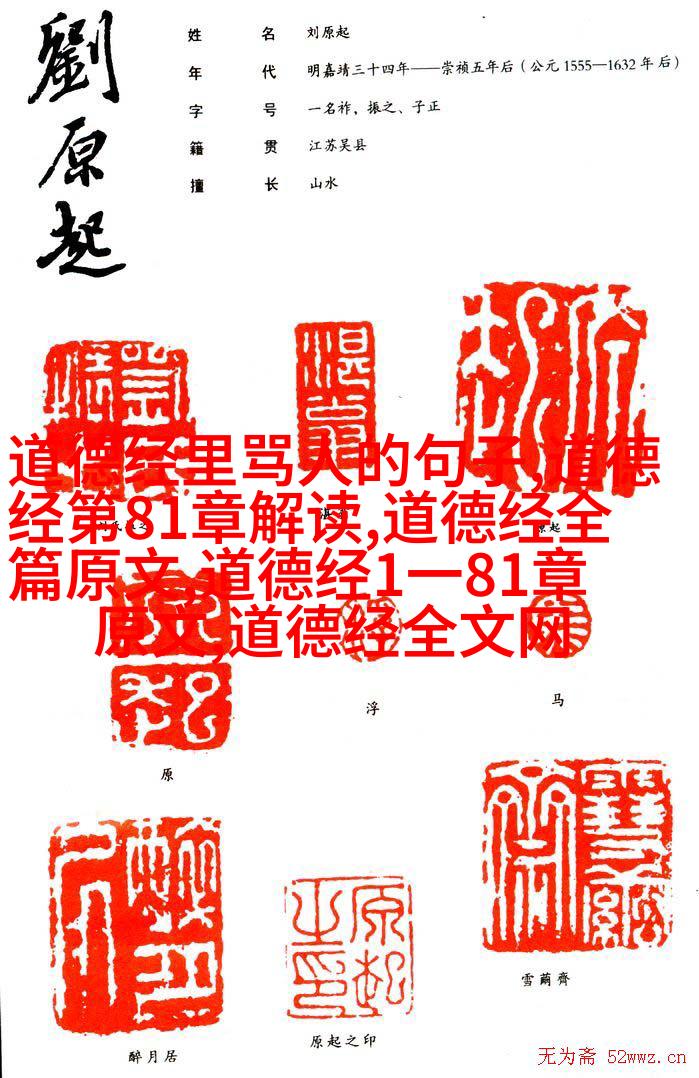 劉原起
姓名 刘原起
年代 明嘉靖三十四年——崇祯五年后（公元1555—1632年后）
字号 一名祚，振之、子正
籍贯 江苏吴县
擅长 山水
道德经里骂人的句子,道德
经第81章解读,道德经全
篇原文,道德经1一81章
原文,道德经全文网
原起
浮
马
原
雪蕳齊
原起之印
醉月居
无为斋 52wwz.cn